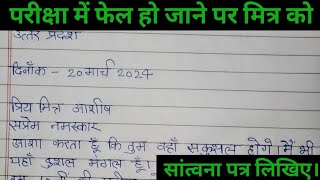 परीक्षा में फेल हो जाने पर मित्र को
उत्तर प्रदेश
दिनाँक - 20 मार्च 2024
प्रिय मित्र आशीष
सप्रेम नमस्कार
आशा करता हूँ कि तुम वहाँ सकुसल होगे। मैं भी
यहाँ कुशल मंगल हूँ।
सांत्वना पत्र लिखिए।